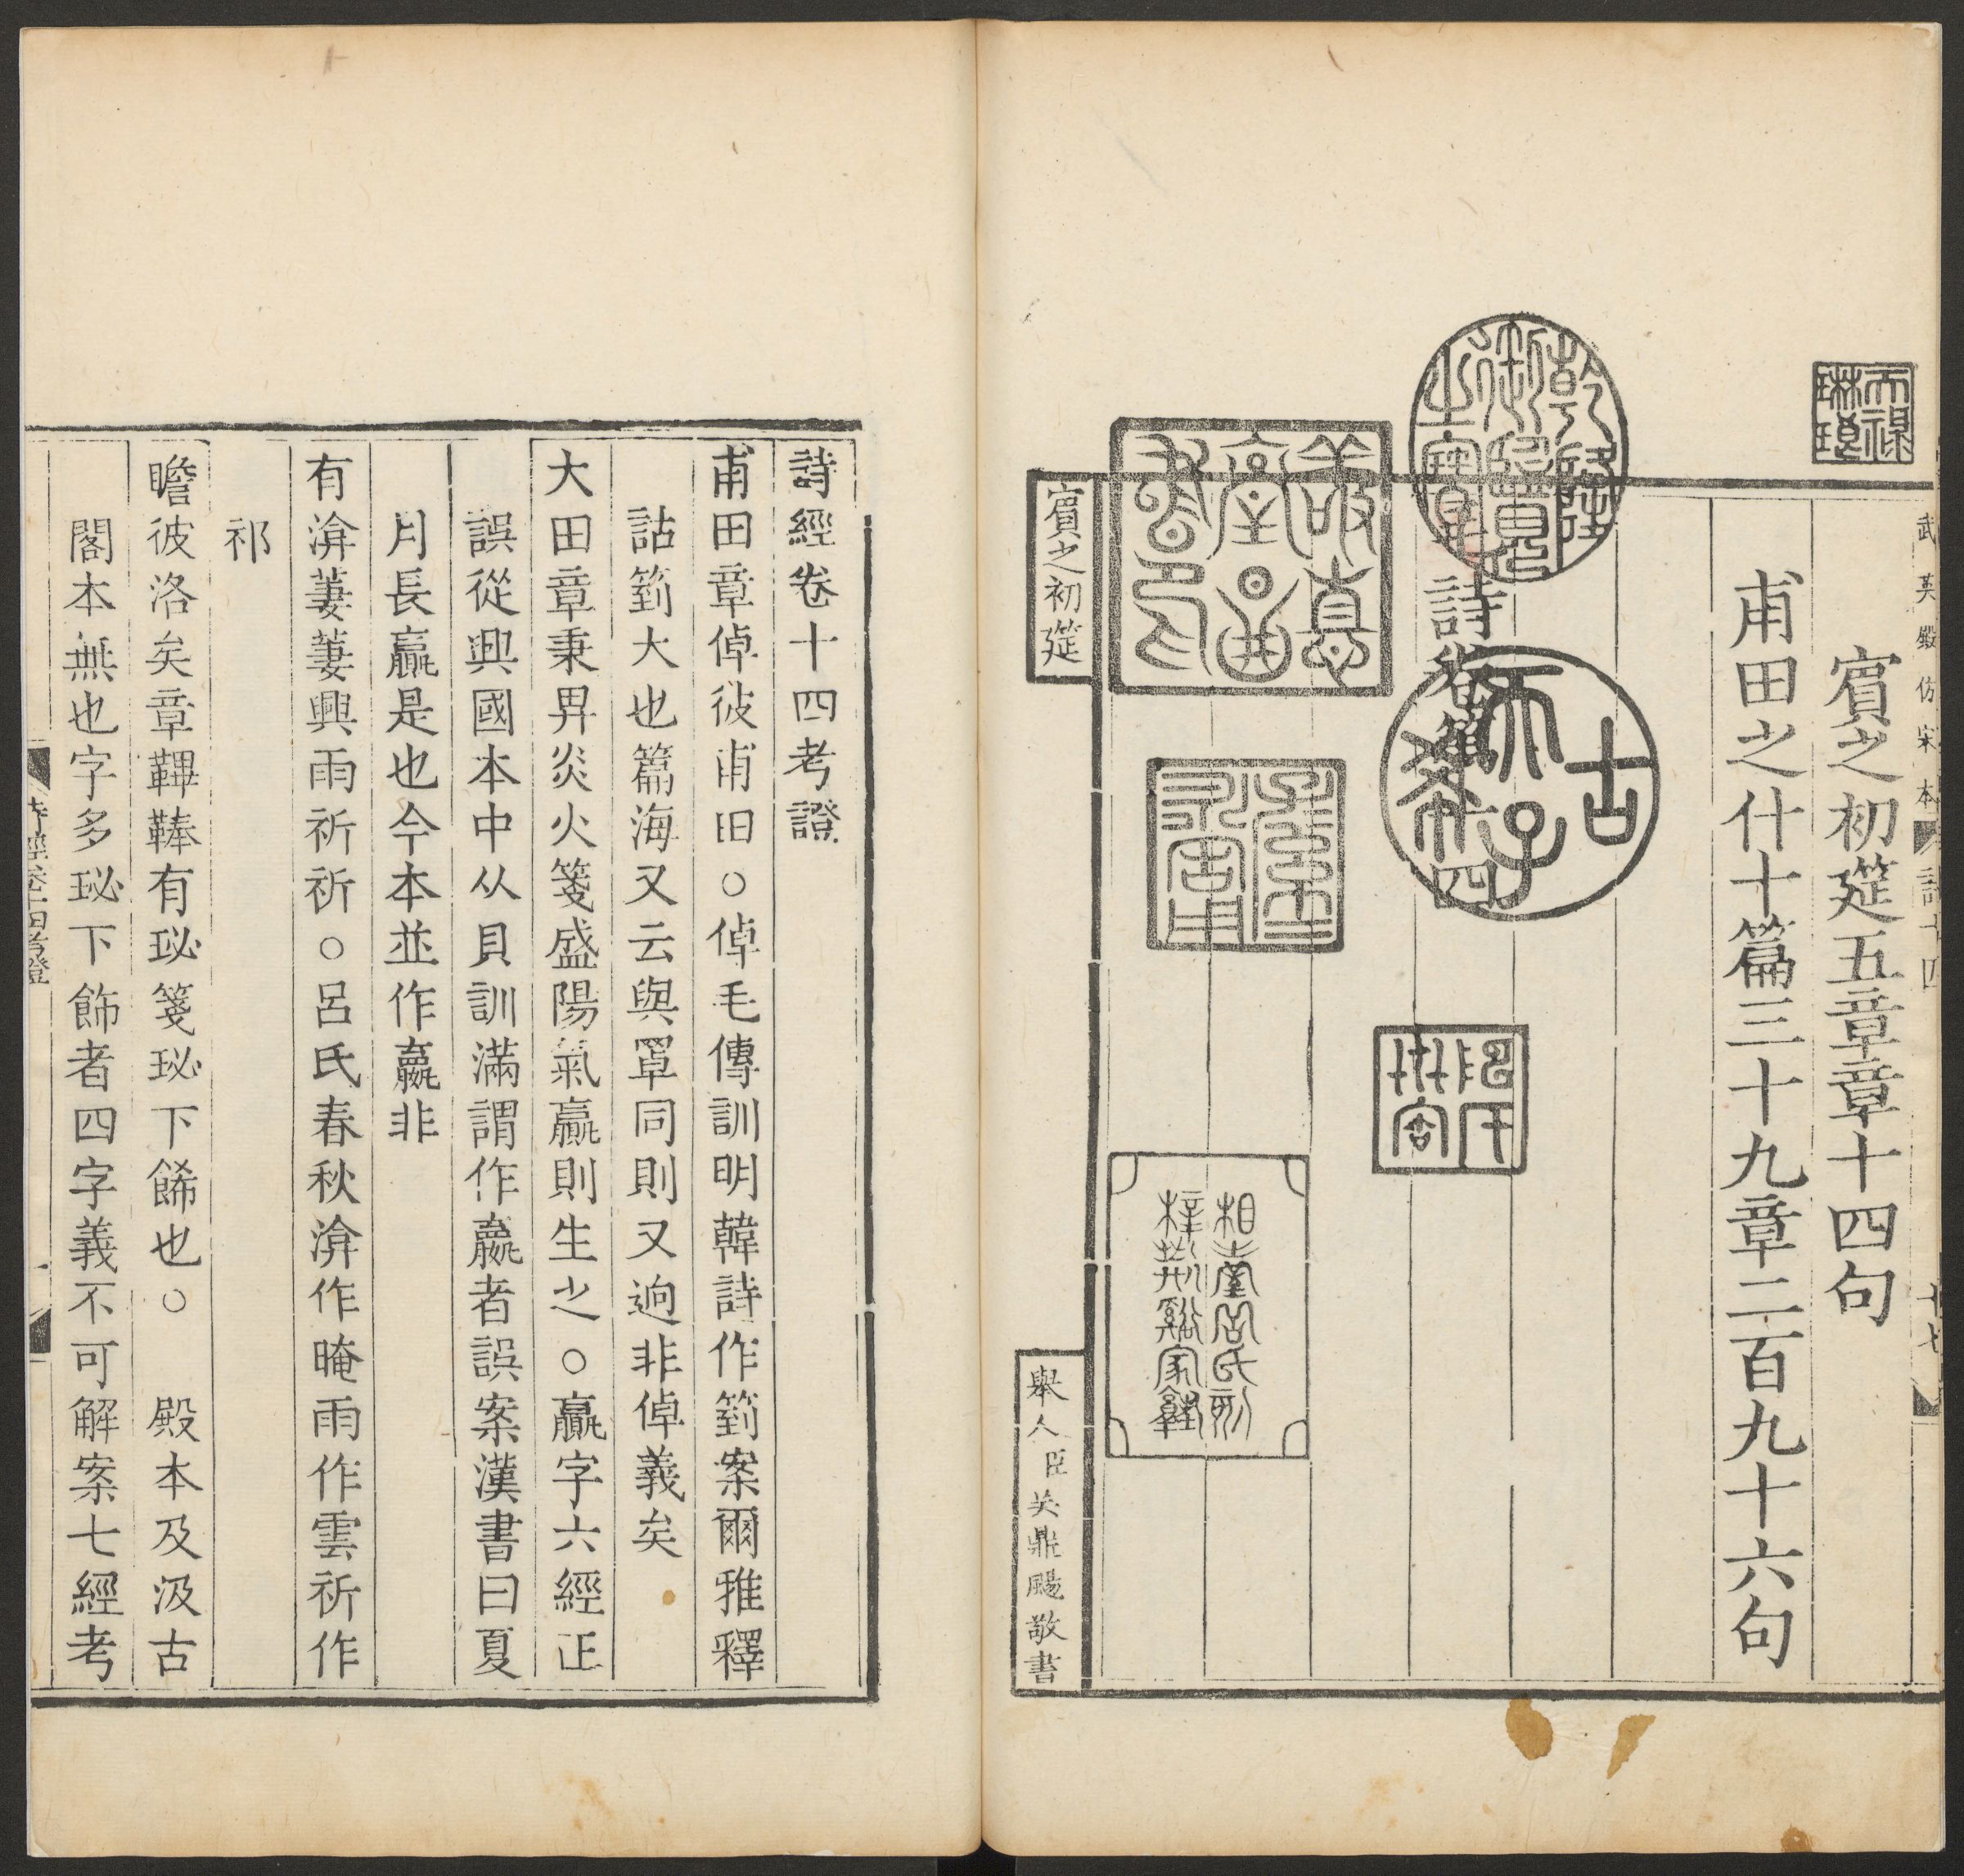 武英殿仿宋本
詩十四
十七
賓之初筵五章章十四句
甫田之什十篇三十九章二百九十六句
詩卷第十四
天祿琳琅
乾隆御覽之寶
古希天子
相臺岳氏刻
梓荆谿家塾
賓之初筵
舉人臣吳鼎颺敬書
詩經卷十四考證
甫田章倬彼甫田○倬毛傳訓明韓詩作箌案爾雅釋
詁箌大也篇海又云與罩同則又逈非倬義矣
大田章秉畀炎火箋盛陽氣贏則生之○贏字六經正
誤從興國本中从貝訓滿謂作嬴者誤案漢書曰夏
月長贏是也今本並作嬴非
有渰萋萋興雨祈祈○呂氏春秋渰作晻雨作雲祈作
祁
瞻彼洛矣章鞸琫有珌箋珌下餙也○ 殿本及汲古
閣本無也字多珌下飾者四字義不可解案七經考
詩經卷十四考證